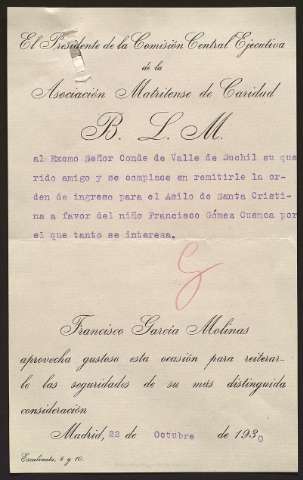 El Presidente de la Comisión Central Ejecutiva
de la
Asociación Matritense de Caridad
B. L. M.
al Excmo Señor Conde de Valle de Suchil su que
rido amigo y se complace en remitirle la or-
den de ingreso para el Asilo de Santa Cristi-
na a favor del niño Francisco Gómez Cuenca por
el que tanto se interesa.
Francisco García Molinas
aprovecha gustoso esta ocasión para reiterar-
le las seguridades de su más distinguida
consideración
Madrid, 22 de Octubre de 1930